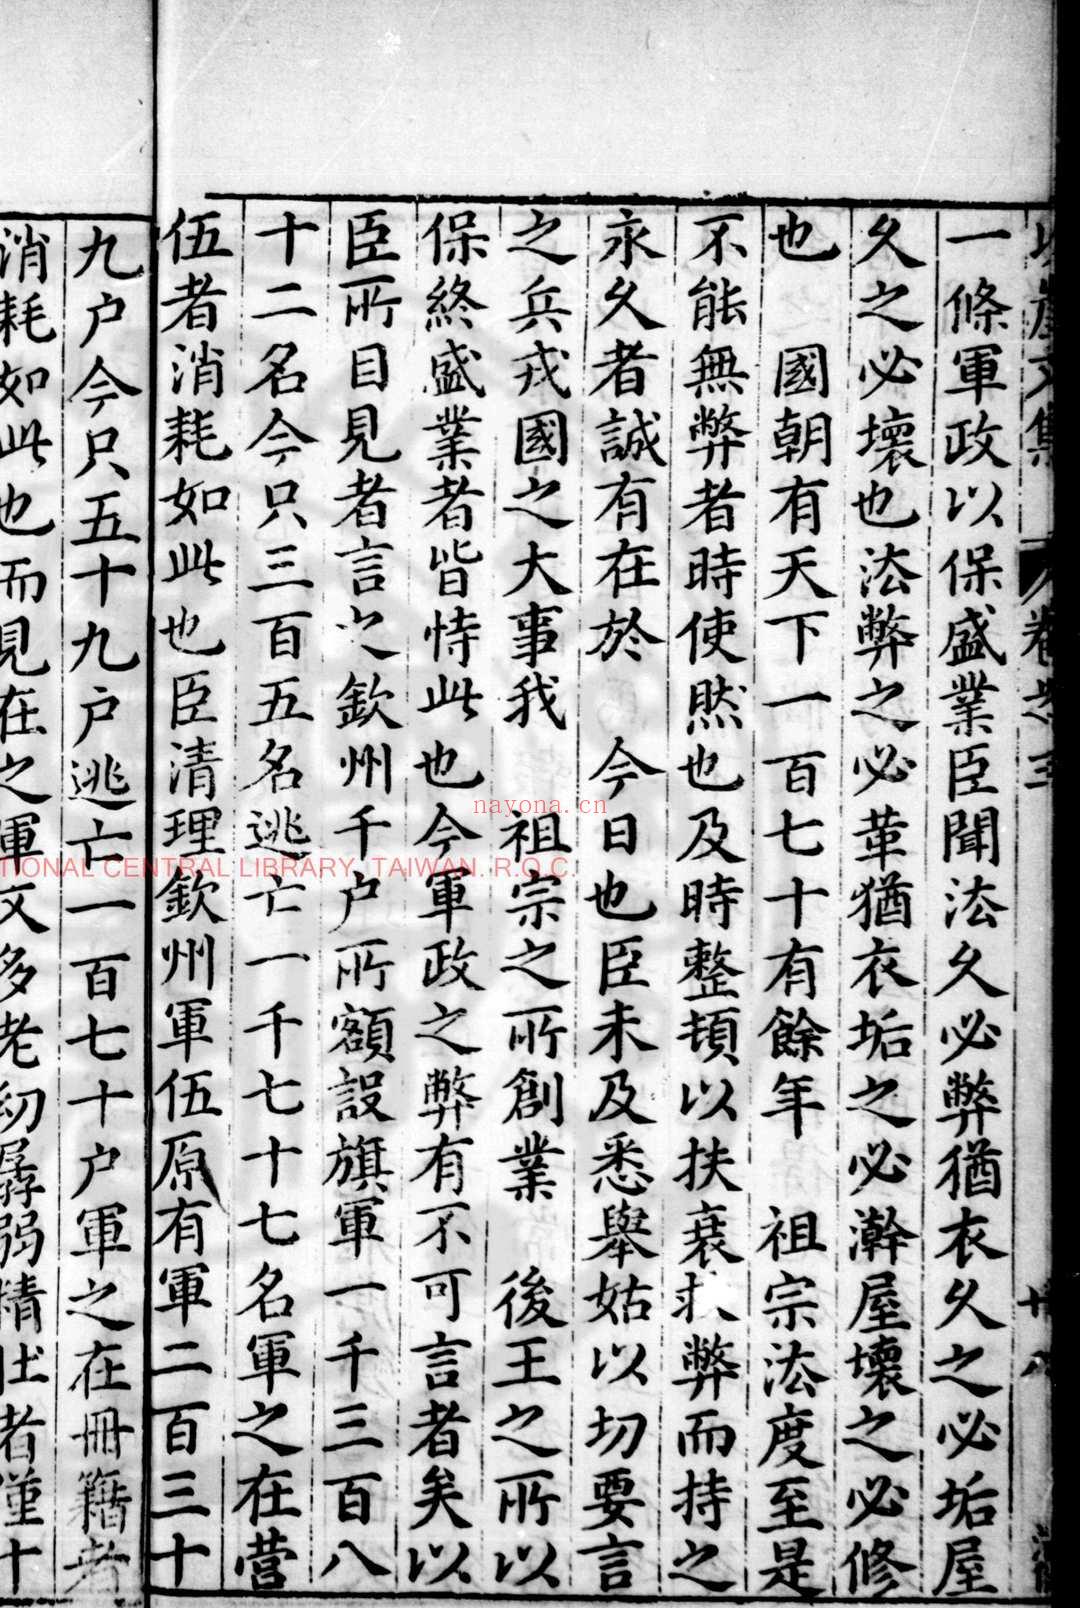 一條軍政以保盛業臣聞法久必弊猶衣久之必垢屋
久之必壞也法弊之必革猶衣垢之必澣屋壞之必修
也　國朝有天下一百七十有餘年　祖宗法度至是
不能無弊者時使然也及時整頓以扶衰扶弊而持之
永久者誠有在於　今日也臣未及悉舉姑以切要言
之兵戎國之大事我　祖宗之所創業　後王之所以
保終盛業者皆恃此也今軍政之弊有不可言者矣以
臣所目見者言之欽州千户所額設旗軍一千三百八
十二名今只三百五名逃亡一千七十七名軍之在營
伍者消耗如此也臣清理欽州軍伍原有軍二百三十
九户今只五十九户逃亡一百七十户軍之在冊籍者
消耗如此也而見在之軍又多老幼孱弱精壯者僅十
文集
卷之三
廿八
nayona.cn
TIONAL CENTRAL LIBRARY, TAIWAN. R.O.C.